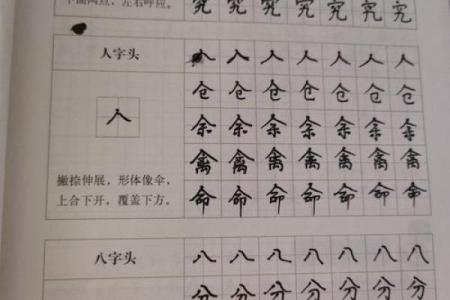 平面两点，左右呼应。
究 究 究 究 究 究 究
人字头
人 人 人 人 人 人 人
仓 仓 仓 仓 仓 仓 仓
人
余 余 余 余 余 余 余
禽 禽 禽 禽 禽 禽 禽
撇捺伸展，形体像伞，
上合下开，覆盖下方。
命 命 命 命 命 命 命
八字头
八 八 八 八 八 八 八
分 分 分 分 分 分 分